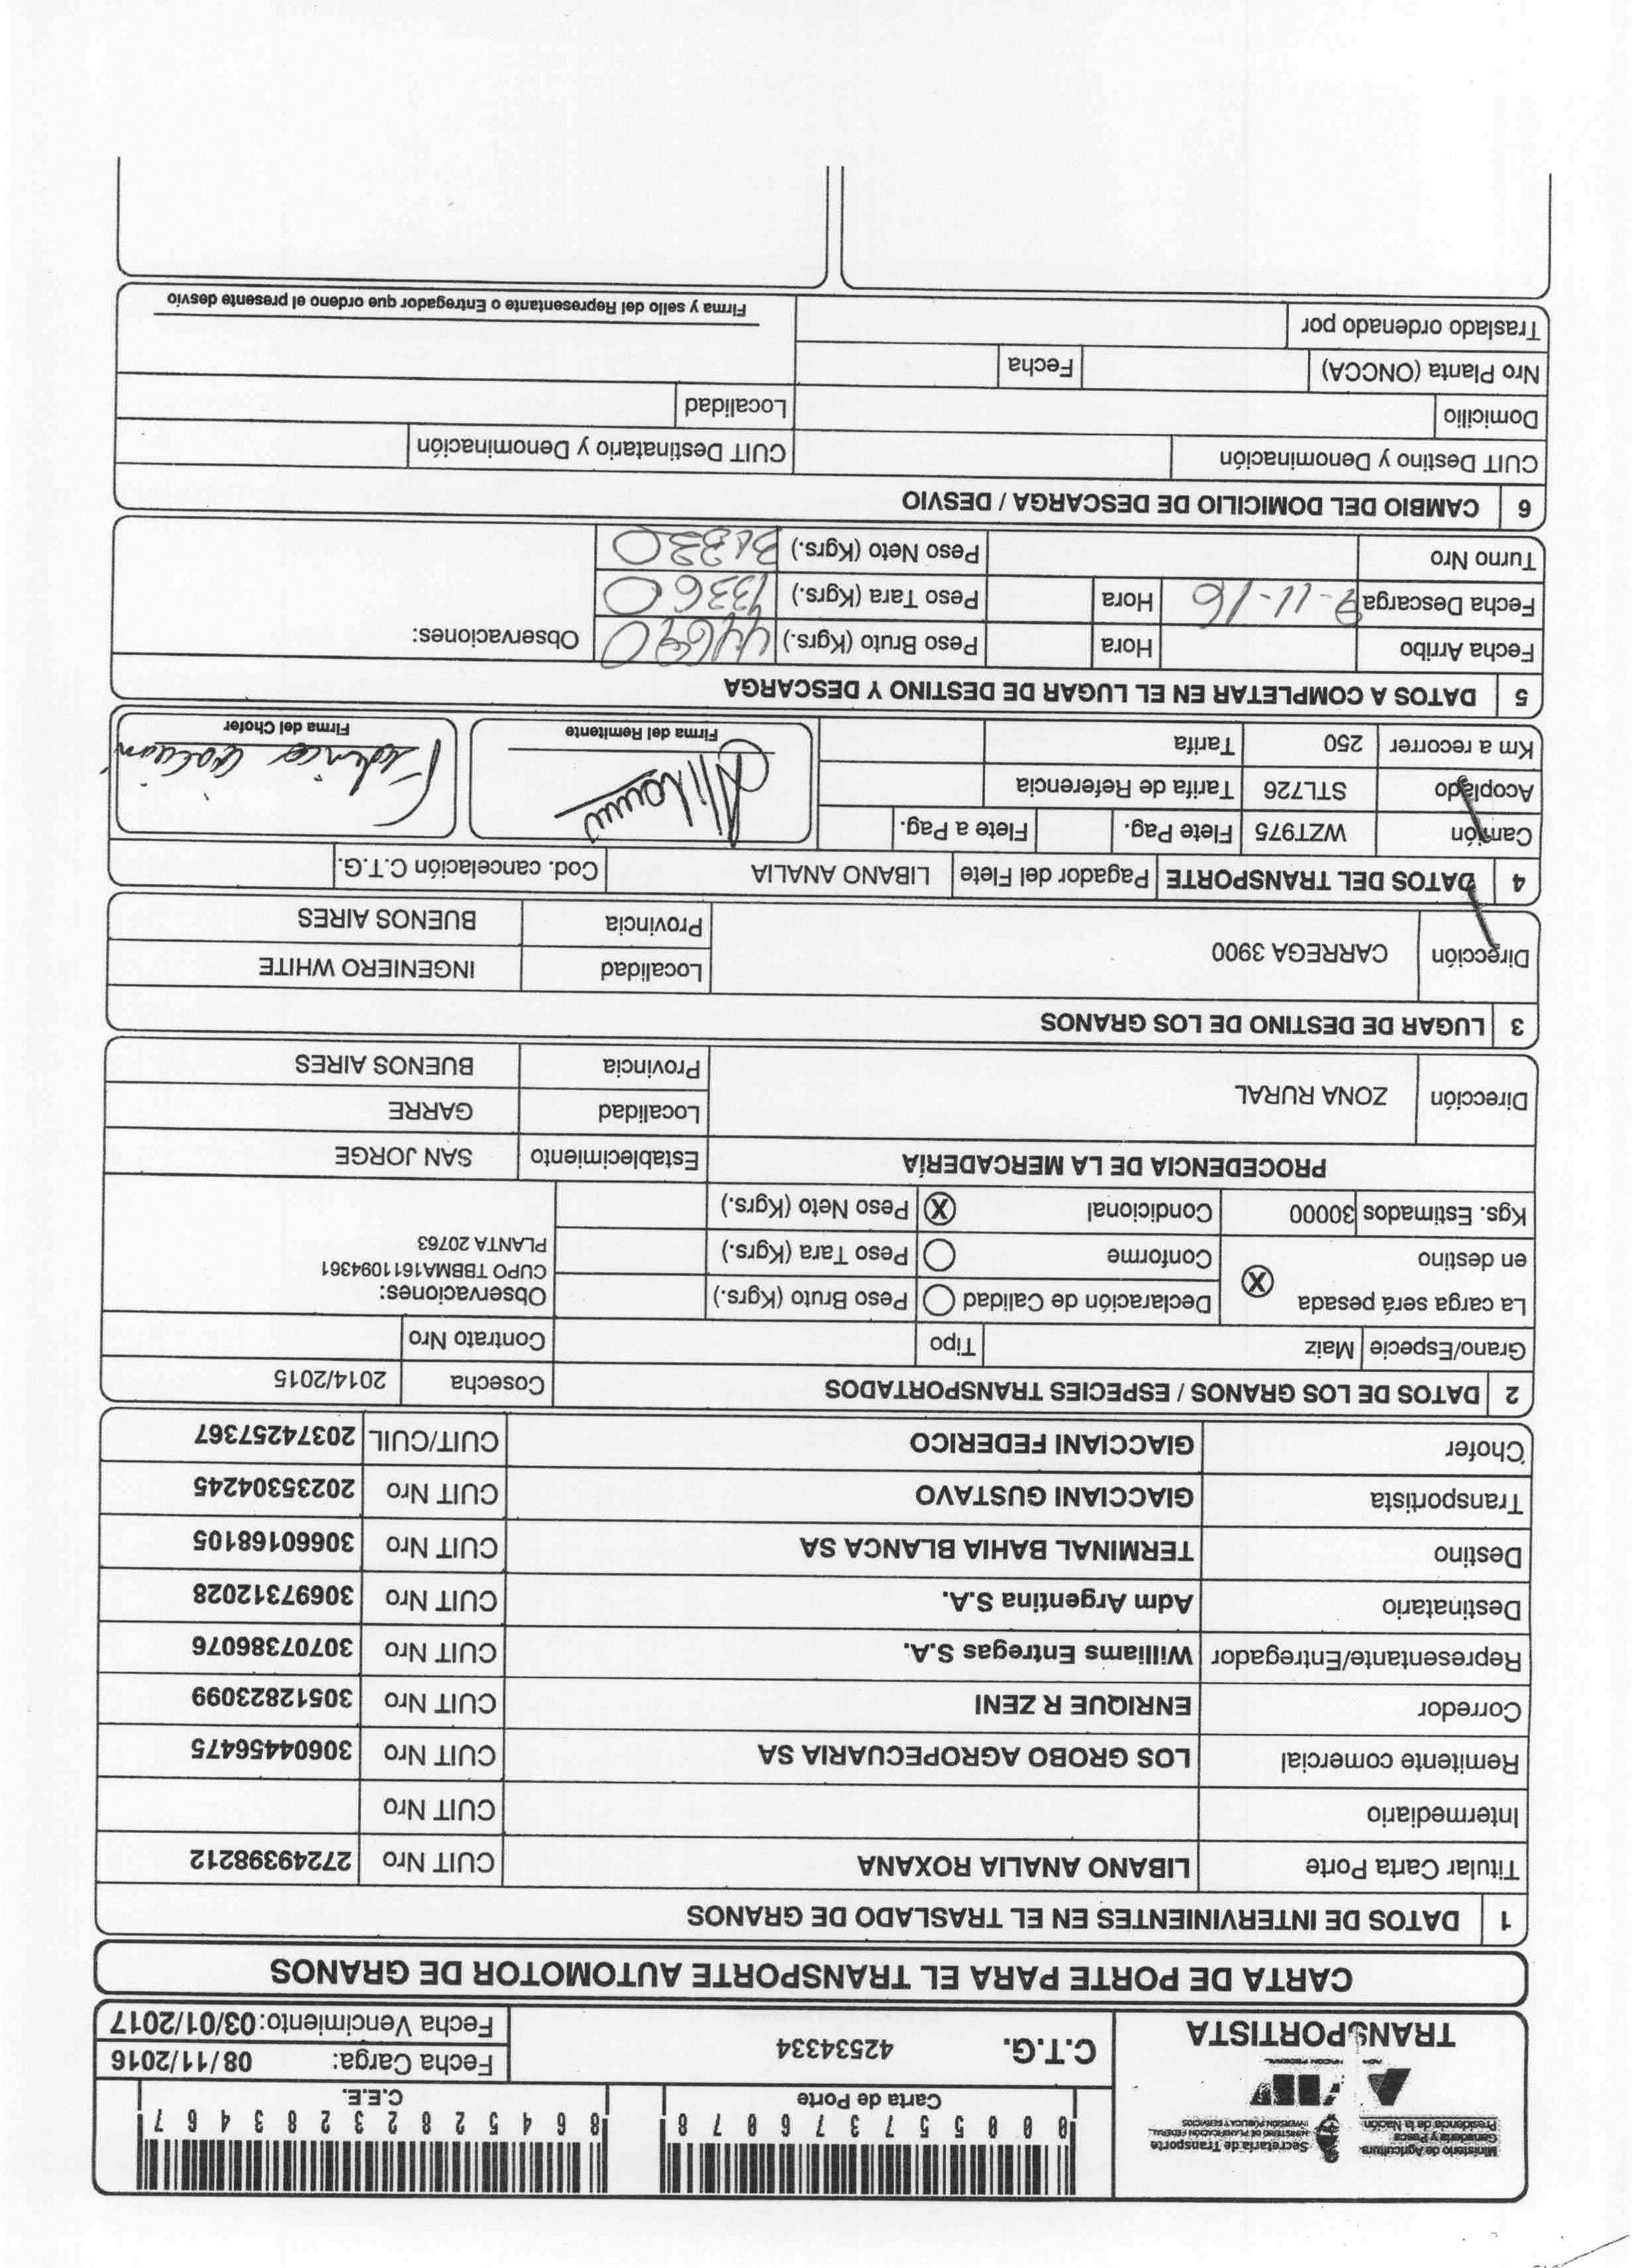 Ministerio de Agricultura
Ganadería y Pesca
Presidencia de la Nación
Secretaría de Transporte
MINISTERIO DE PLANIFICACIÓN FEDERAL,
INVERSIÓN PÚBLICA Y SERVICIOS
TRANSPORTISTA
Carta de Porte
C.E.E.
C.T.G. 42534334
Fecha Carga: 08/11/2016
Fecha Vencimiento: 03/01/2017
CARTA DE PORTE PARA EL TRANSPORTE AUTOMOTOR DE GRANOS
1 DATOS DE INTERVINIENTES EN EL TRASLADO DE GRANOS
Titular Carta Porte LIBANO ANALIA ROXANA CUIT Nro 27249398212
Intermediario CUIT Nro
Remitente comercial LOS GROBO AGROPECUARIA SA CUIT Nro 30604456475
Corredor ENRIQUE R ZENI CUIT Nro 30512823099
Representante/Entregador Williams Entregas S.A. CUIT Nro 30707386076
Destinatario Adm Argentina S.A. CUIT Nro 30697312028
Destino TERMINAL BAHIA BLANCA SA CUIT Nro 30660168105
Transportista GIACCIANI GUSTAVO CUIT Nro 20235304245
Chofer GIACCIANI FEDERICO CUIT/CUIL 20374257367
2 DATOS DE LOS GRANOS / ESPECIES TRANSPORTADOS Cosecha 2014/2015
Grano/Especie Maiz Tipo Contrato Nro
La carga será pesada en destino X
Declaración de Calidad Peso Bruto (Kgrs.)
Conforme Peso Tara (Kgrs.)
Kgs. Estimados 30000 Condicional X Peso Neto (Kgrs.)
Observaciones:
CUPO TBBMA1611094361
PLANTA 20763
PROCEDENCIA DE LA MERCADERÍA Establecimiento SAN JORGE
Dirección ZONA RURAL Localidad GARRE
Provincia BUENOS AIRES
3 LUGAR DE DESTINO DE LOS GRANOS
Dirección CARREGA 3900 Localidad INGENIERO WHITE
Provincia BUENOS AIRES
4 DATOS DEL TRANSPORTE Pagador del Flete LIBANO ANALIA Cod. cancelación C.T.G.
Camión WZT975 Flete Pag. Flete a Pag.
Acoplado STL726 Tarifa de Referencia
Km a recorrer 250 Tarifa
Firma del Remitente
Firma del Chofer
5 DATOS A COMPLETAR EN EL LUGAR DE DESTINO Y DESCARGA
Fecha Arribo Hora Peso Bruto (Kgrs.) Observaciones:
Fecha Descarga 9-11-16 Hora Peso Tara (Kgrs.)
Turno Nro Peso Neto (Kgrs.)
6 CAMBIO DEL DOMICILIO DE DESCARGA / DESVIO
CUIT Destino y Denominación CUIT Destinatario y Denominación
Domicilio Localidad
Nro Planta (ONCCA) Fecha
Traslado ordenado por
Firma y sello del Representante o Entregador que ordeno el presente desvio